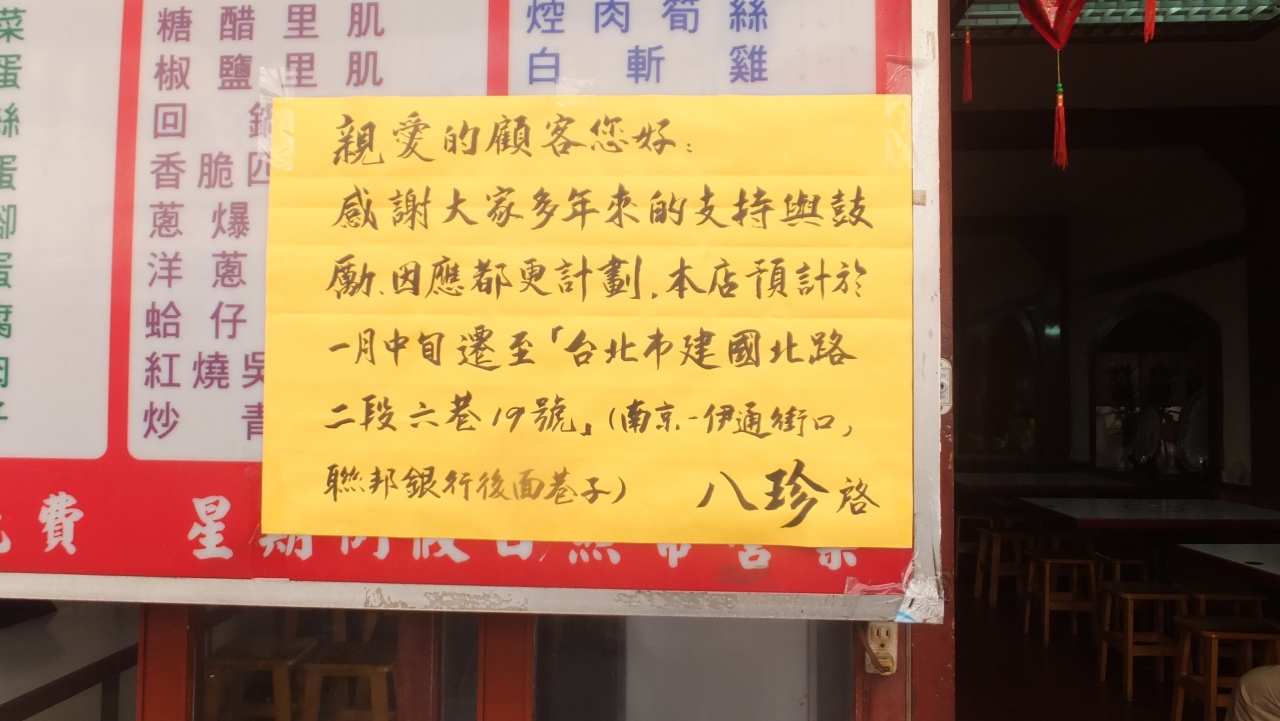 菜
蛋
絲
蛋
腳
蛋
腐
肉
子
糖醋里肌
椒鹽里肌
回鍋
香脆四
蔥爆
洋蔥
蛤仔
紅燒吳
炒青
焢肉筍絲
白斬雞
親愛的顧客您好：
感謝大家多年來的支持與鼓
勵、因應都更計劃，本店預計於
一月中旬遷至「台北市建國北路
二段六巷19號」(南京-伊通街口，
聯邦銀行後面巷子)　八珍啓
費　星期例假日照常營業